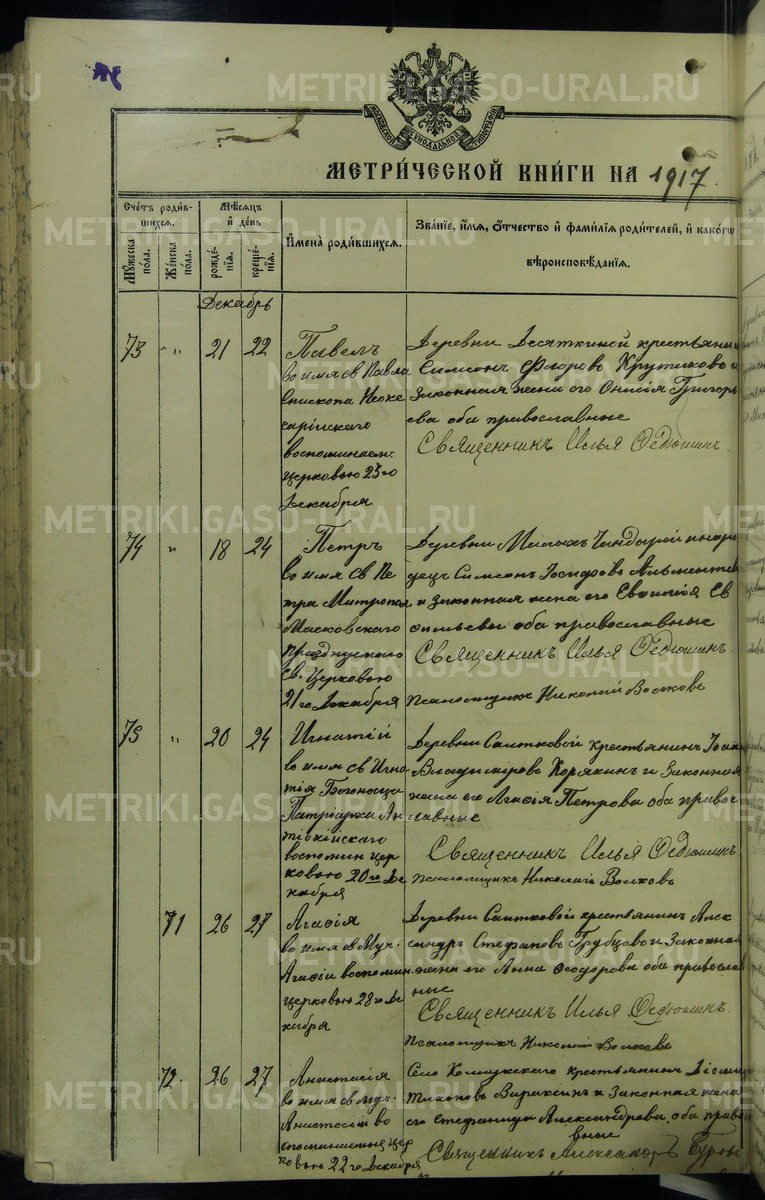 METRIKI.GASO-URAL.RU
МОСКОВСКОЙ СѴНОДАЛЬНОЙ ТИПОГРАФІИ
МЕТРИ́ЧЕСКОЙ КНИ́ГИ НА 1917.
Сче́тъ роди́в-
шихся.
Му́жеска по́ла.
Же́нска по́ла.
Мѣ́сяцъ
и҆ де́нь
рожде́-
нїя.
креще́-
нїя.
И҆мена̀ роди́вшихся.
Зва́нїе, и҆́мя, ѻ҆́тчество и҆ фами́лїя роди́телей, и҆ како́гѡ
вѣроисповѣ́данїя.
Декабрь
73 " 21 22
Павелъ
во имя св Павла
Епископа Неоке
сарійскаго
воспоминаем.
церковью 23го
Декабря
Деревни Десяткиной крестьянинъ
Симеонъ Флоровъ Крутиковъ и
Законная жена его Онисія Григорь
ева оба православные
Священникъ Илья Ѳедюшинъ.
74 " 18 24
Петръ
во имя св Пе
тра Митропол
Московскаго
празднуемаго
св. Церковью
21го Декабря
Деревни Малыхъ иноро
децъ Симеонъ Іосифовъ
и Законная жена его
оба православные
Священникъ Илья Ѳедюшинъ.
Псаломщикъ Николай Волковъ
75 " 20 24
Игнатій
во имя св Игна
тія Богоносца
Патріарха Ан
тіохійскаго
воспомин цер
ковью 20го Де
кабря
Деревни Саитковой крестьянинъ Іоан
Владиміровъ Корякинъ и Законная
жена его Агафія Петрова оба правос
лавные
Священникъ Илья Ѳедюшинъ
Псаломщикъ Николай Волковъ
71 26 27
Агафія
во имя св Муч.
Агафіи воспомин.
церковью 28го Де
кабря
Деревни Саитковой крестьянинъ Алек
сандръ Стефановъ Грубцовъ и Законная
жена его Анна Ѳеодорова оба православ
ные
Священникъ Илья Ѳедюшинъ.
Псаломщикъ Николай Волковъ
72. 26 27
Анастасія
во имя св муч.
Анастасіи во
споминаемыя цер
ковью 22го Декабря
Село крестьянинъ
Тихоновъ и Законная жена
его Стефанида Александрова, оба право
вные
Священникъ Александръ